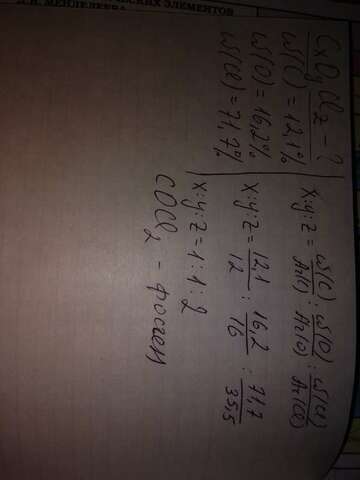 Д.И. МЕНДЕЛЕЕВА
ЭЛЕМЕНТОВ
CxOyClz - ?
ω(C) = 12,1%
ω(O) = 16,2%
ω(Cl) = 71,7%
x:y:z = ω(C)/Ar(C) : ω(O)/Ar(O) : ω(Cl)/Ar(Cl)
x:y:z = 12,1/12 : 16,2/16 : 71,7/35,5
x:y:z = 1:1:2
COCl2 - фосген